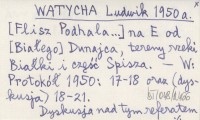 WATYCHA Ludwik 1950 a.
[Flisz Podhala...] na E od
[Białego] Dunajca, tereny rzeki
Białki i część Spisza. – W:
Protokół 1950: 17-18 oraz (dys-
kusja) 18-21.
Dyskusja nad tym referatem